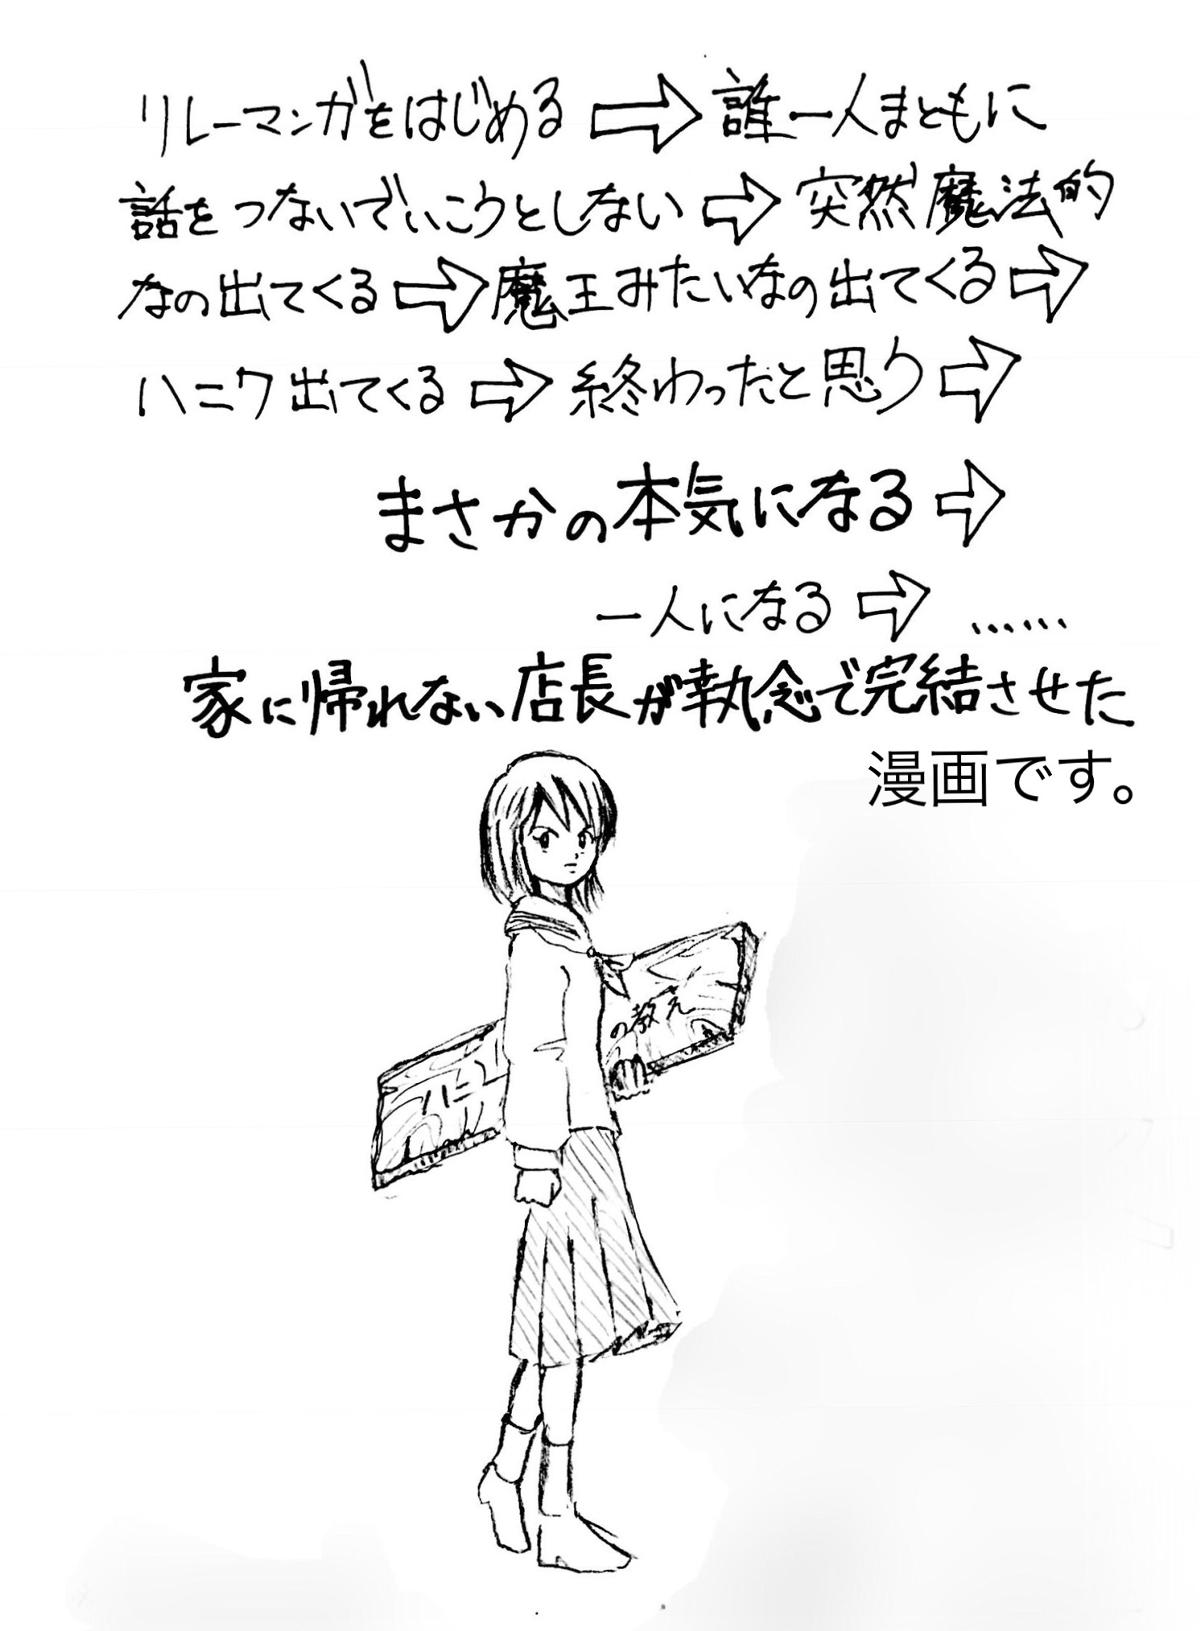 リレーマンガをはじめる⇨誰一人まともに
話をつないでいこうとしない⇨突然魔法的
なの出てくる⇨魔王みたいなの出てくる⇨
ハニワ出てくる⇨終わったと思う⇨
まさかの本気になる⇨
一人になる⇨……
家に帰れない店長が執念で完結させた
漫画です。
の教え